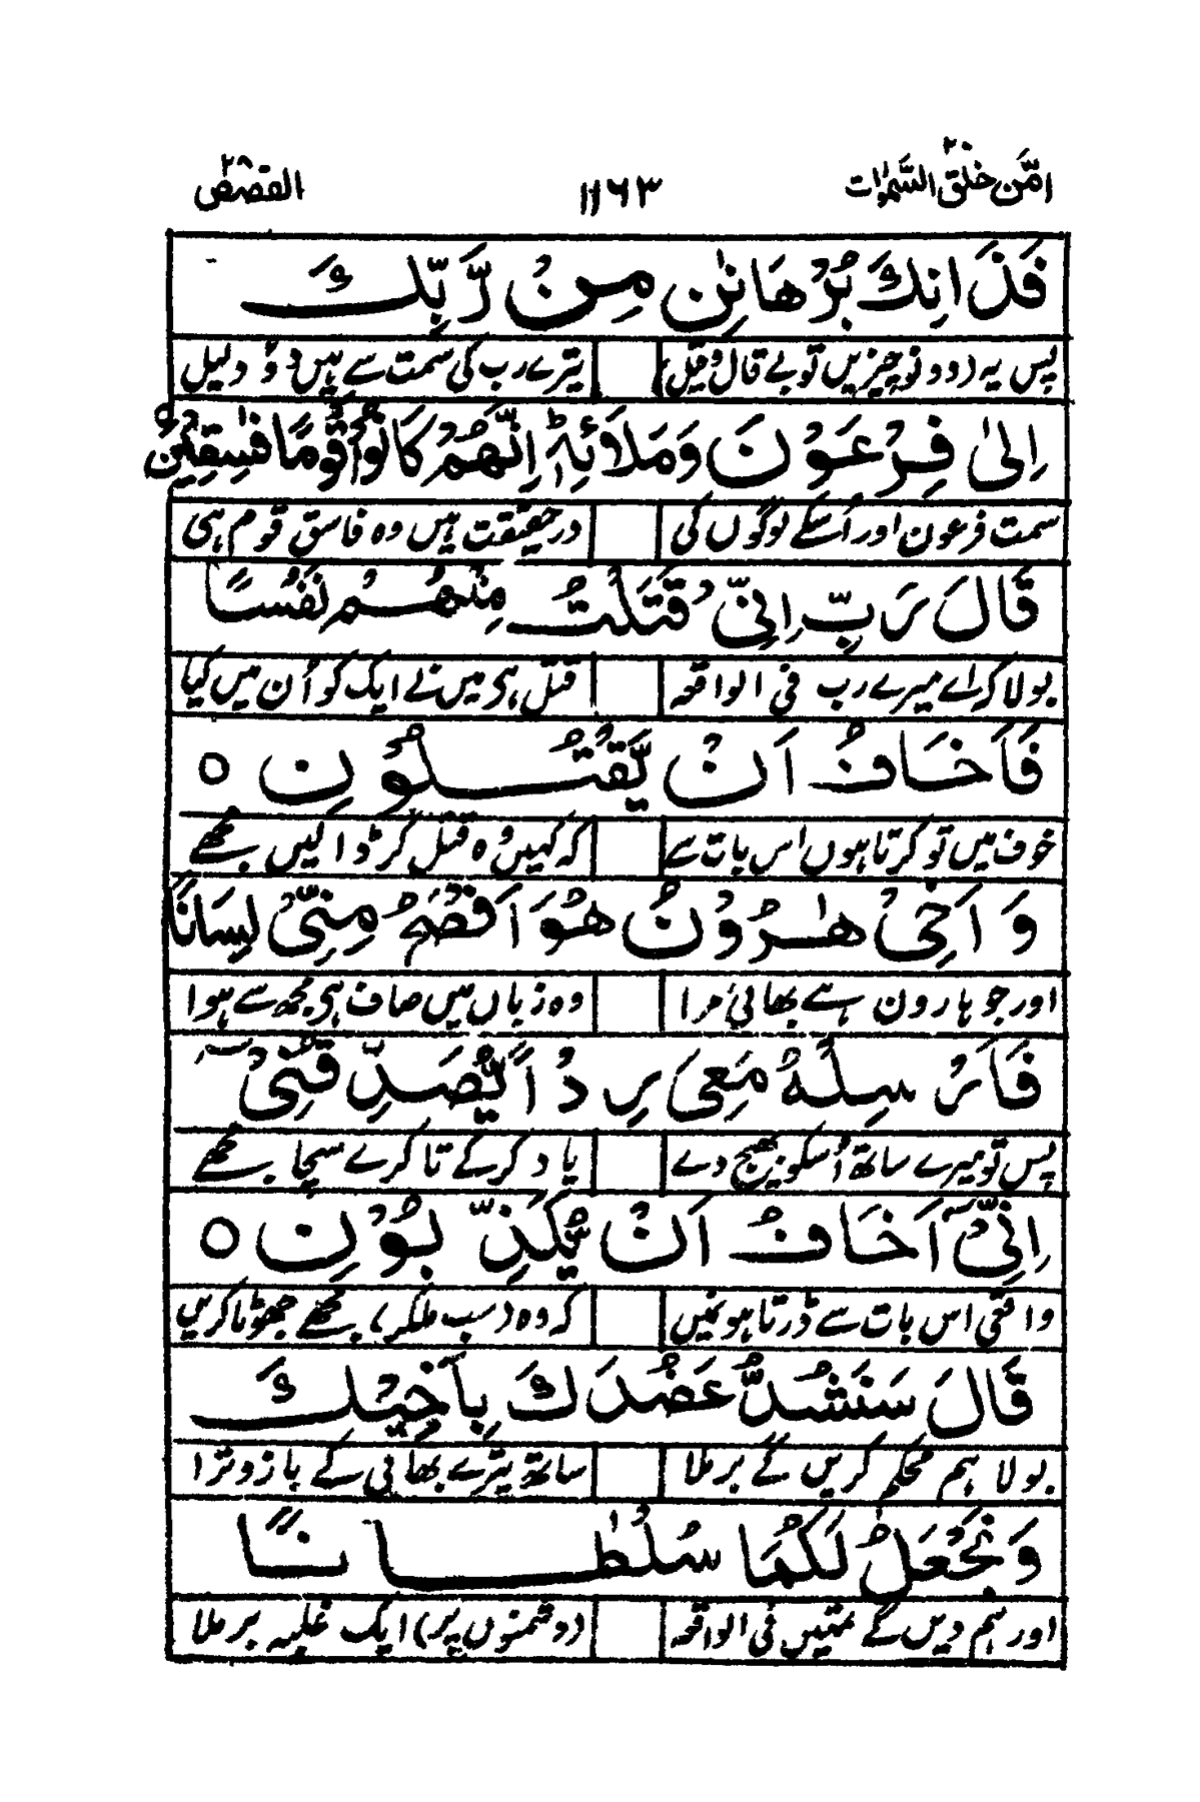 امّن خلق السّمٰوٰت ۲۰ ۱۱۶۳ القصص ۲۸
فَذٰنِكَ بُرْهَانٰنِ مِنْ رَّبِّكَ
پس یہ (دونو چیزیں تو بے قال و قیل) تیرے رب کی سمت سے ہیں دو دلیل
اِلٰى فِرْعَوْنَ وَمَلَا۟ئِهٖ اِنَّهُمْ كَانُوْا قَوْمًا فٰسِقِيْنَ
سمت فرعون اور اُسکے لوگوں کی درحقیقت ہیں وہ فاسق قوم ہی
قَالَ رَبِّ اِنِّىْ قَتَلْتُ مِنْهُمْ نَفْسًا
بولا کہ اے میرے رب فی الواقعہ قتل ہی میں نے ایک کو اُن میں کیا
فَاَخَافُ اَنْ يَّقْتُلُوْنِ ○
خوف میں تو کرتا ہوں اس بات سے کہ کہیں وہ قتل کر ڈالیں مجھے
وَاَخِىْ هٰرُوْنُ هُوَ اَفْصَحُ مِنِّىْ لِسَانًا
اور جو ہارون ہے بھائی مرا وہ زباں میں صاف ہی مجھ سے ہوا
فَاَرْسِلْهُ مَعِىَ رِدْاً يُّصَدِّقُنِىْٓ
پس تو میرے ساتھ اُسکو بھیج دے یاد کر کے تا کرے سچا مجھے
اِنِّىْٓ اَخَافُ اَنْ يُّكَذِّبُوْنِ ○
واقعی اس بات سے ڈرتا ہوں میں کہ وہ (سب ملکر) مجھے جھوٹا کریں
قَالَ سَنَشُدُّ عَضُدَكَ بِاَخِيْكَ
بولا ہم محکم کریں گے برملا ساتھ تیرے بھائی کے بازو ترا
وَنَجْعَلُ لَكُمَا سُلْطٰنًا
اور ہم دیں گے تمہیں فی الواقعہ (دشمنوں پر) ایک غلبہ برملا